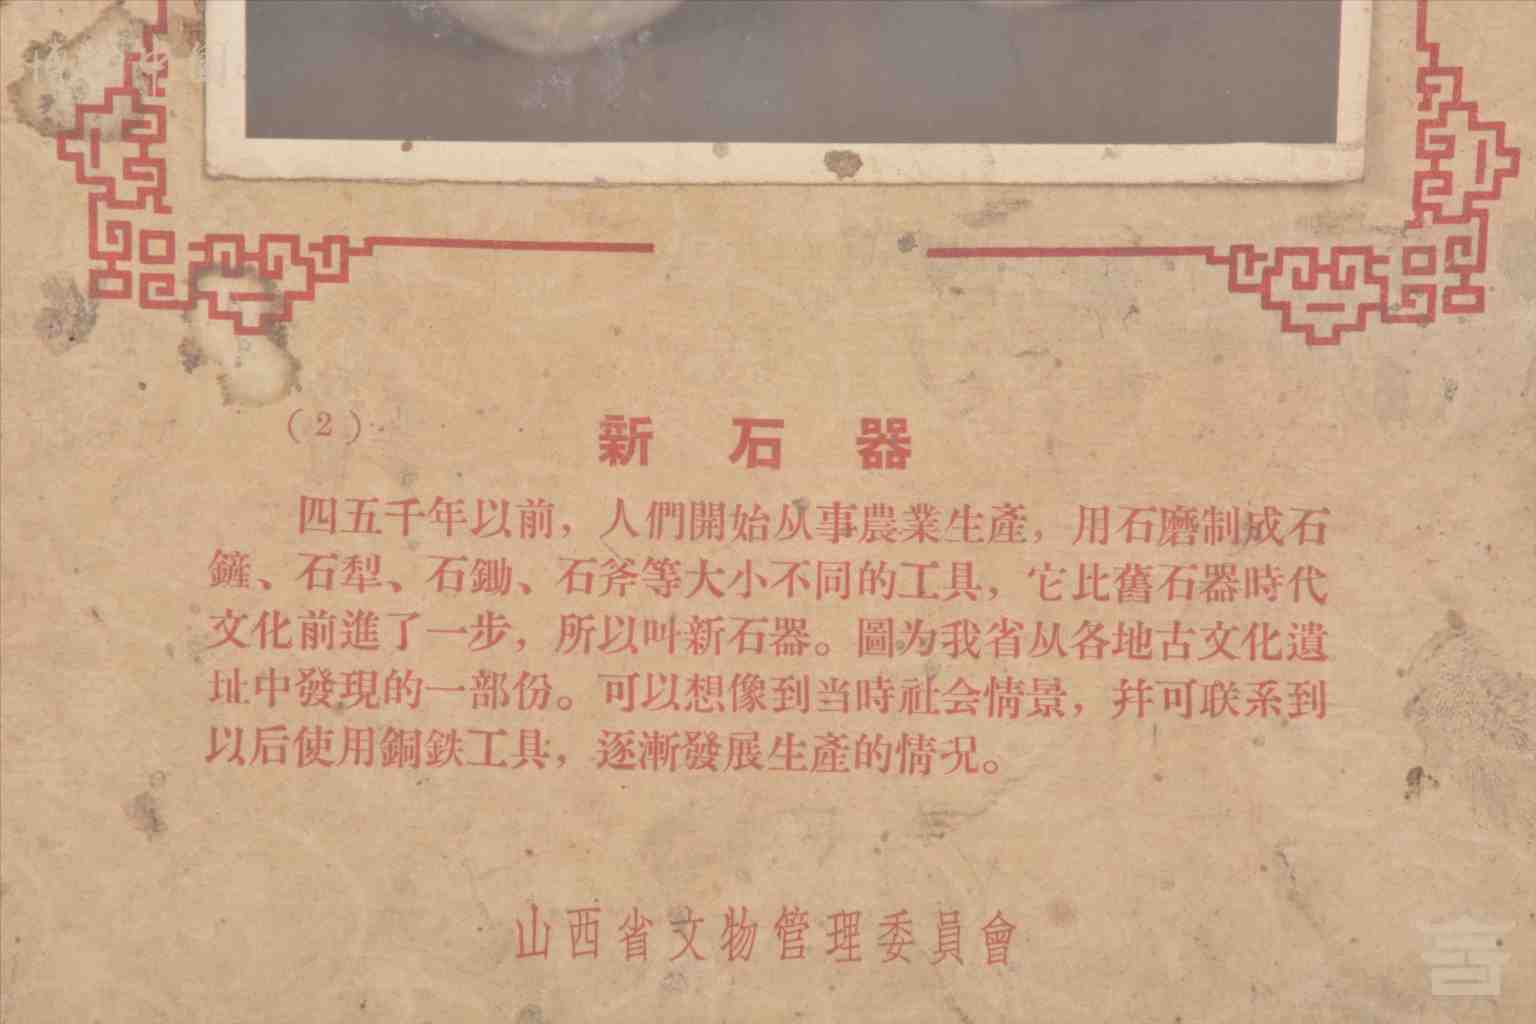 博古中国
（2）
新石器
四五千年以前，人們開始从事農業生產，用石磨制成石
鏟、石犁、石鋤、石斧等大小不同的工具，它比舊石器時代
文化前進了一步，所以叫新石器。圖为我省从各地古文化遺
址中發現的一部份。可以想像到当時社会情景，幷可联系到
以后使用銅鉄工具，逐漸發展生產的情况。
山西省文物管理委員會